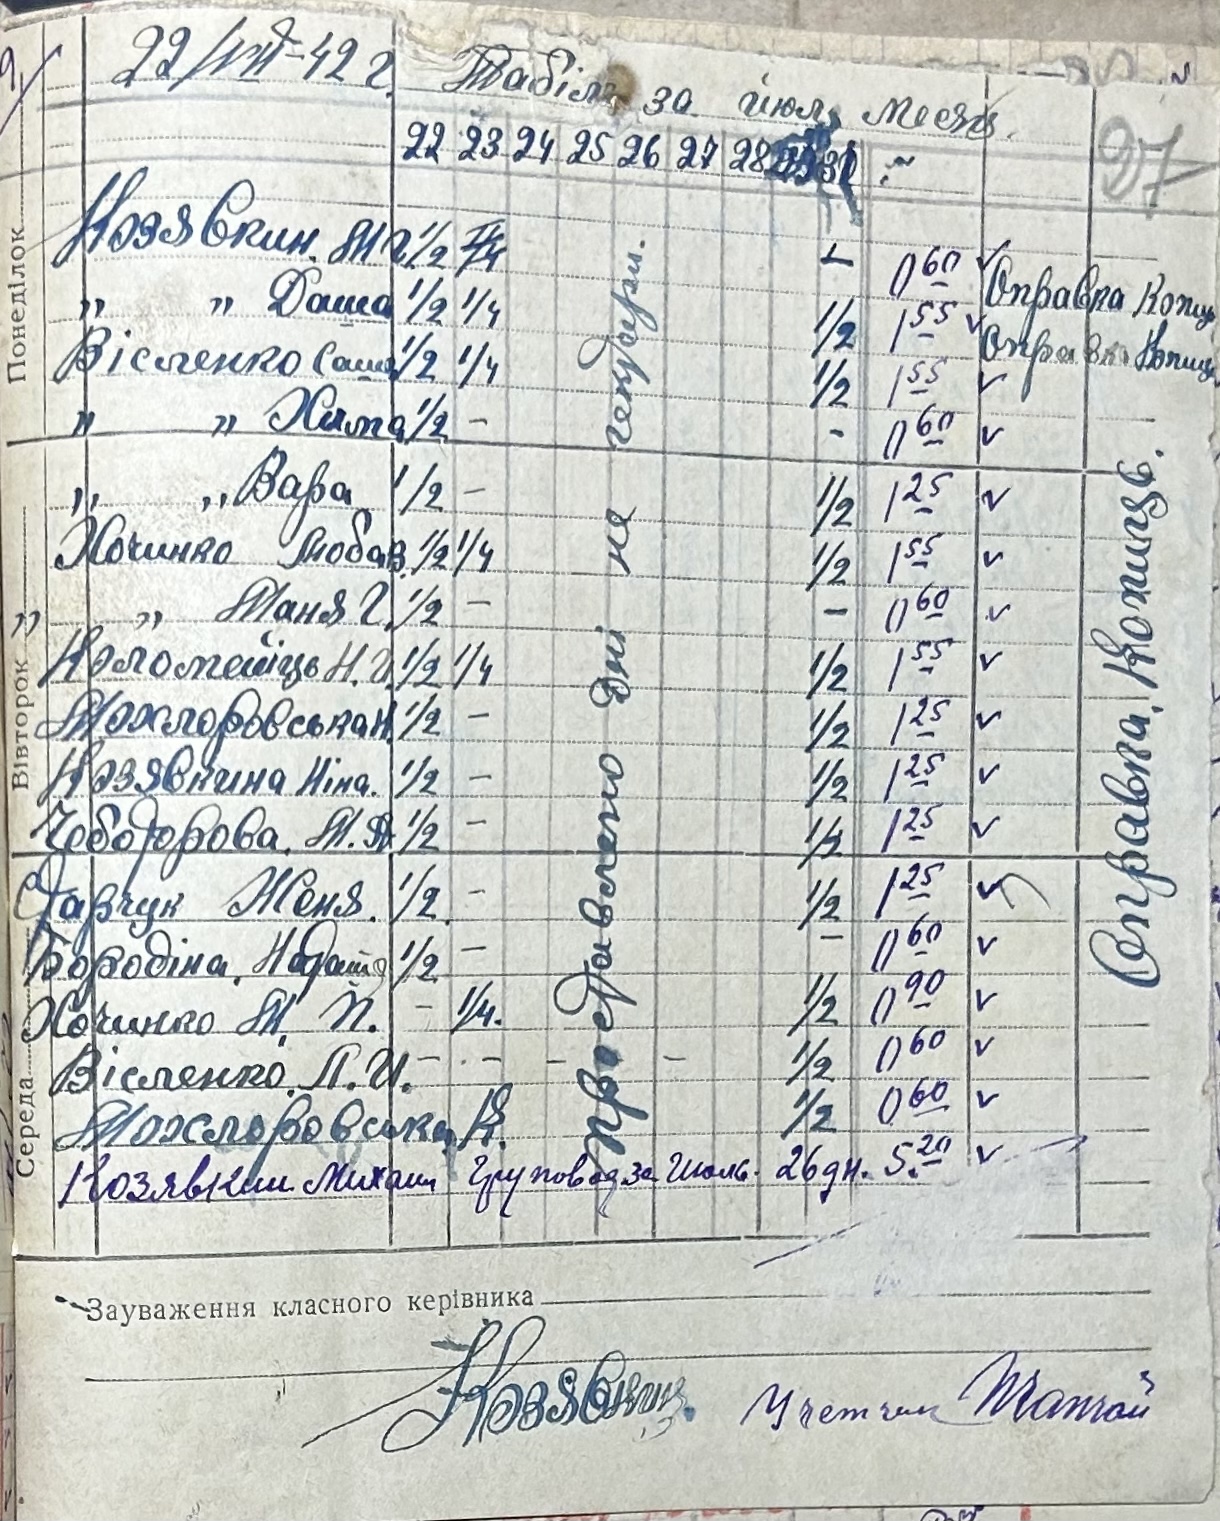 22/VII-42 г. Табіль за июль месяц.
27
22 23 24 25 26 27 28 31
Понеділок
Козявкин. М 1/2 - 0 60 v Справка Копиц
„ „ Даша 1/2 1/4 1/2 1 55 v Справка Копиц
Вісленко Саша 1/2 1/4 1/2 1 55 v
„ „ Хима 1/2 - - 0 60 v
„ „ Вара 1/2 - 1/2 1 25 v
Хочинко Любав. 1/2 1/4 1/2 1 55 v
„ „ Таня Г. 1/2 - - 0 60 v
Вівторок
Коломеїць Н. И. 1/2 1/4 1/2 1 55 v
Мохлоровська Н. 1/2 - 1/2 1 25 v
Козявкина Ніна. 1/2 - 1/2 1 25 v
Чеботорова. М. 1/2 - 1/2 1 25 v
Ставчук Женя. 1/2 - 1/2 1 25 v
Бородіна. 1/2 - - 0 60 v
Хочинко М. П. - 1/4. 1/2 0 90 v
Середа
Вісленко. Л. И. - - - - - 1/2 0 60 v
Мохлоровська 1/2 0 60 v
Козявкин Михаил Груповод за Июль. 26 дн. 5.20 v
проставлено дні не
Справка.
Зауваження класного керівника
Козявкин
Учетчик